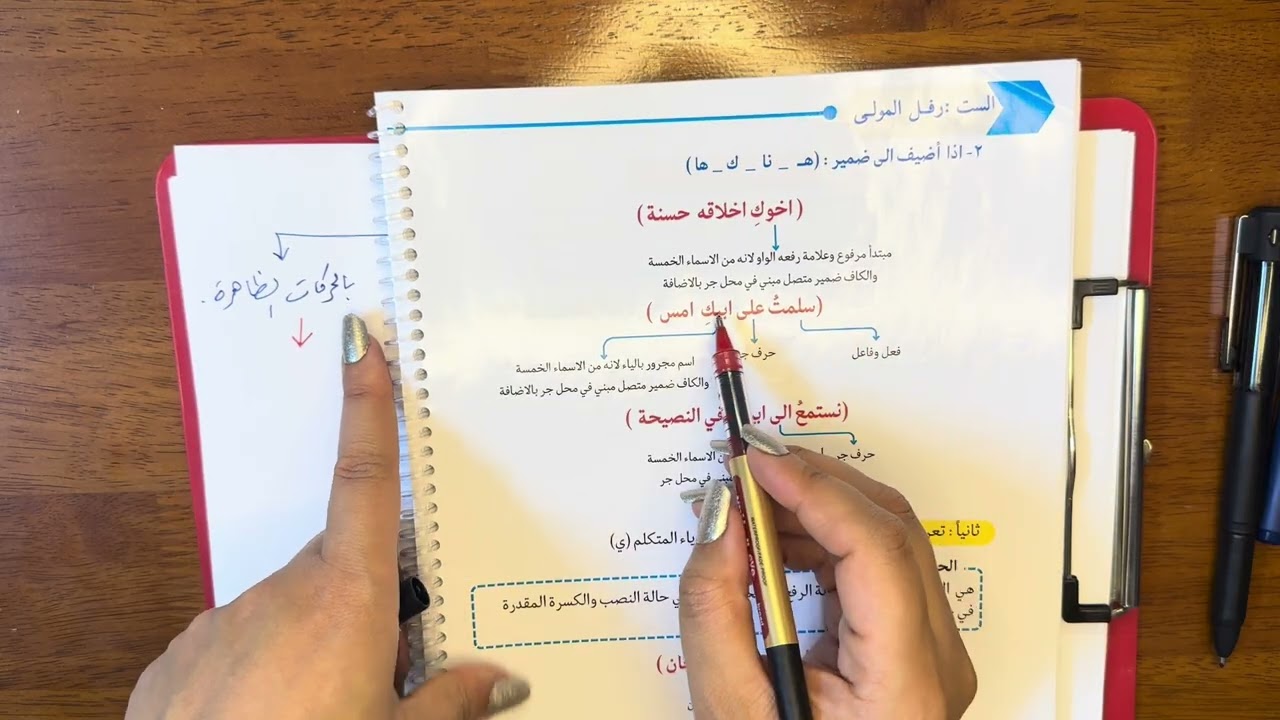 الست :رفـل المولـى
٢- اذا أضيف الى ضمير : (هـ _ نا _ ك _ ها)
( اخوكِ اخلاقه حسنة )
مبتدأ مرفوع وعلامة رفعه الواو لانه من الاسماء الخمسة
والكاف ضمير متصل مبني في محل جر بالاضافة
(سلمتُ على ابيكِ امس )
فعل وفاعل
حرف
اسم مجرور بالياء لانه من الاسماء الخمسة
والكاف ضمير متصل مبني في محل جر بالاضافة
(نستمعُ الى في النصيحة )
حرف جر
الاسماء الخمسة
في محل جر
ثانياً :
ياء المتكلم (ي)
هي
الرفع حالة النصب والكسرة المقدرة
في
بالحركات الظاهرة .